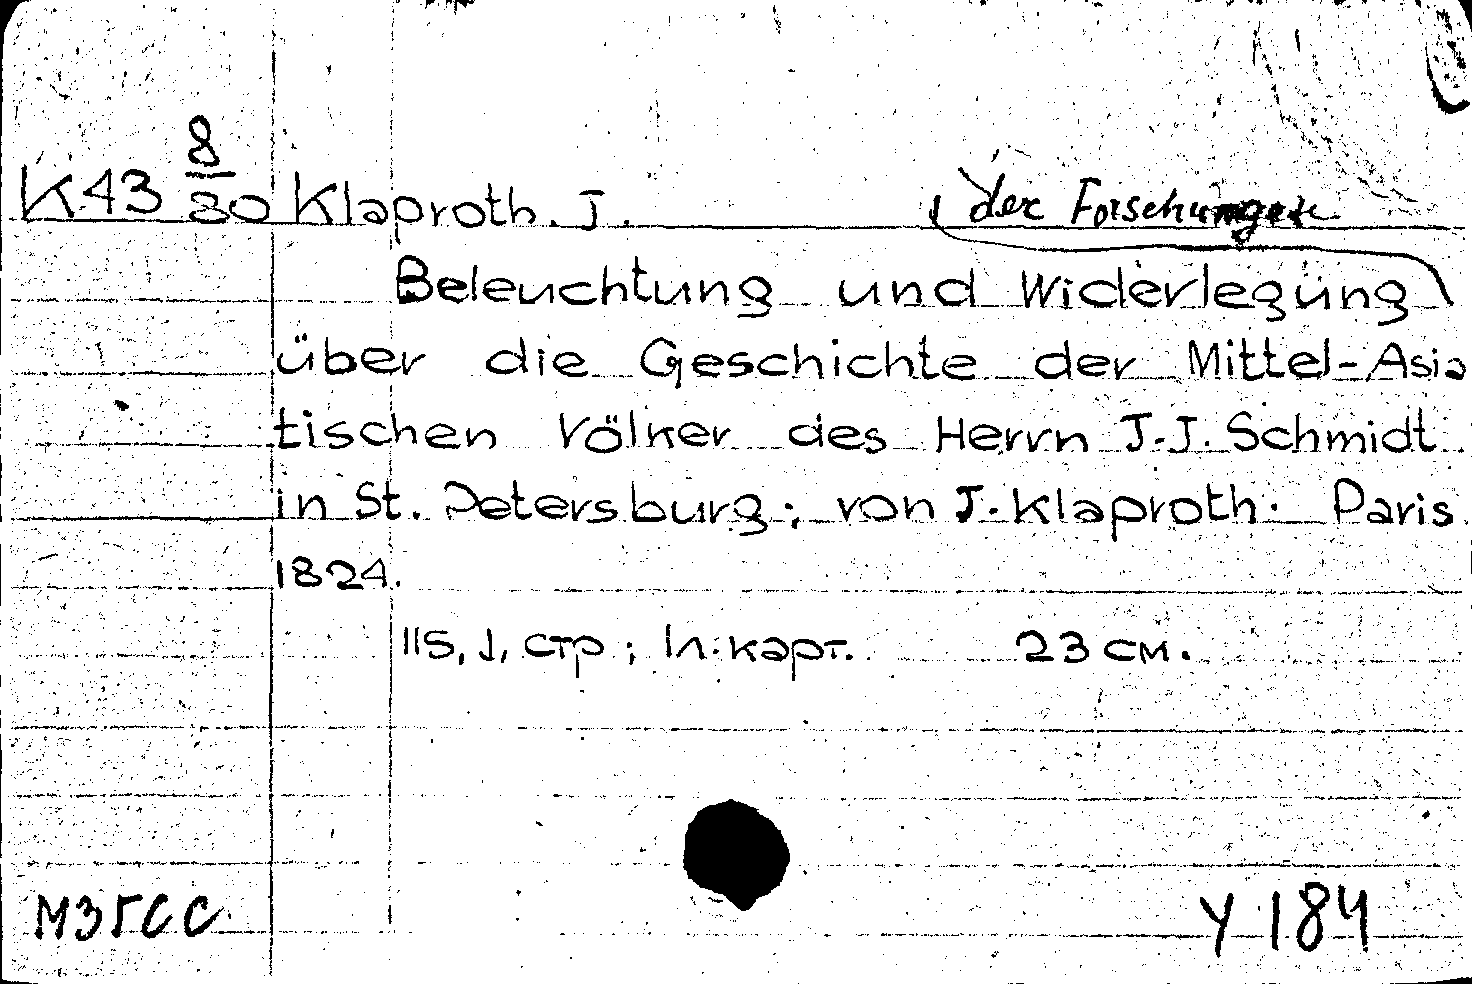 K43 8/30 Klaproth. J.
der Forschungen
Beleuchtung und Widerlegung
über die Geschichte der Mittel-Asia
tischen Völker des Herrn J.J. Schmidt
in St. Petersburg; von J. Klaproth. Paris
1824.
115, 1, стр; 1л. карт. 23 см.
МЗГСС. У 184